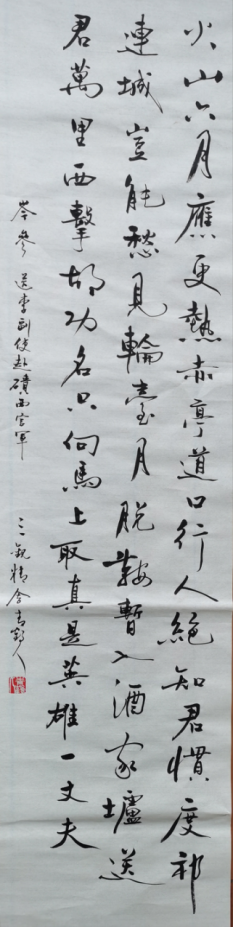 火山六月應更熱赤亭道口行人絕知君慣度祁
連城豈能愁見輪臺月脫鞍暫入酒家壚送
君萬里西擊胡功名只向馬上取真是英雄一丈夫
岑參 送李副使赴磧西官軍 觀精舍 人